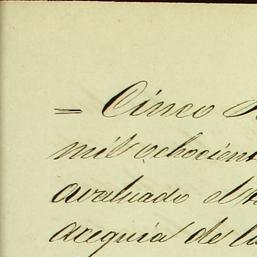 = Cinco
mil ochocient
avaluado el
acequia de la